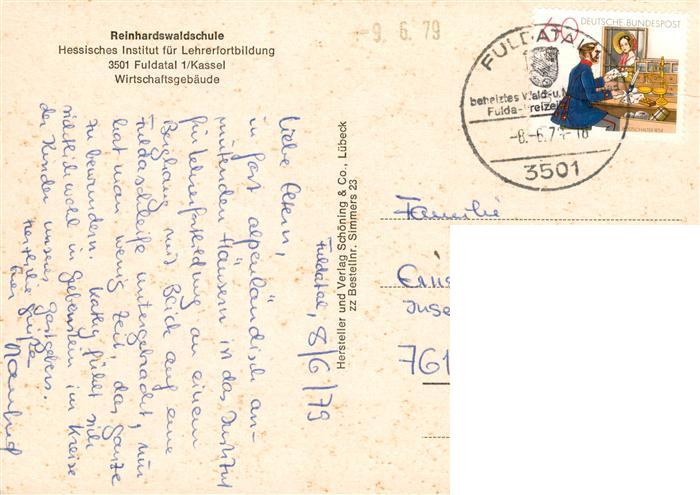 Reinhardswaldschule
Hessisches Institut für Lehrerfortbildung
3501 Fuldatal 1/Kassel
Wirtschaftsgebäude
-9. 6. 79
FULDATAL
beheiztes Wald-u.
Fulda-Freizeit
-8.-6.79-18
3501
60 DEUTSCHE BUNDESPOST
POSTSCHALTER 1854
Fuldatal, 8/6/79
Liebe Eltern,
in fast alpenländisch an-
mutenden Häusern ist das Institut
für Lehrerfortbildung an einem
Berghang mit Blick auf eine
Fuldaschleife untergebracht, nur
hat man wenig Zeit, das Ganze
zu bewundern. Kathy fühlt sich
sichtlich wohl in Gebenstein im Kreise
der Kinder unseres Gastgebers.
Herzliche Grüße
Euer
Manfred
Hersteller und Verlag Schöning & Co., Lübeck
zz Bestellnr. Simmers 23
Familie
761